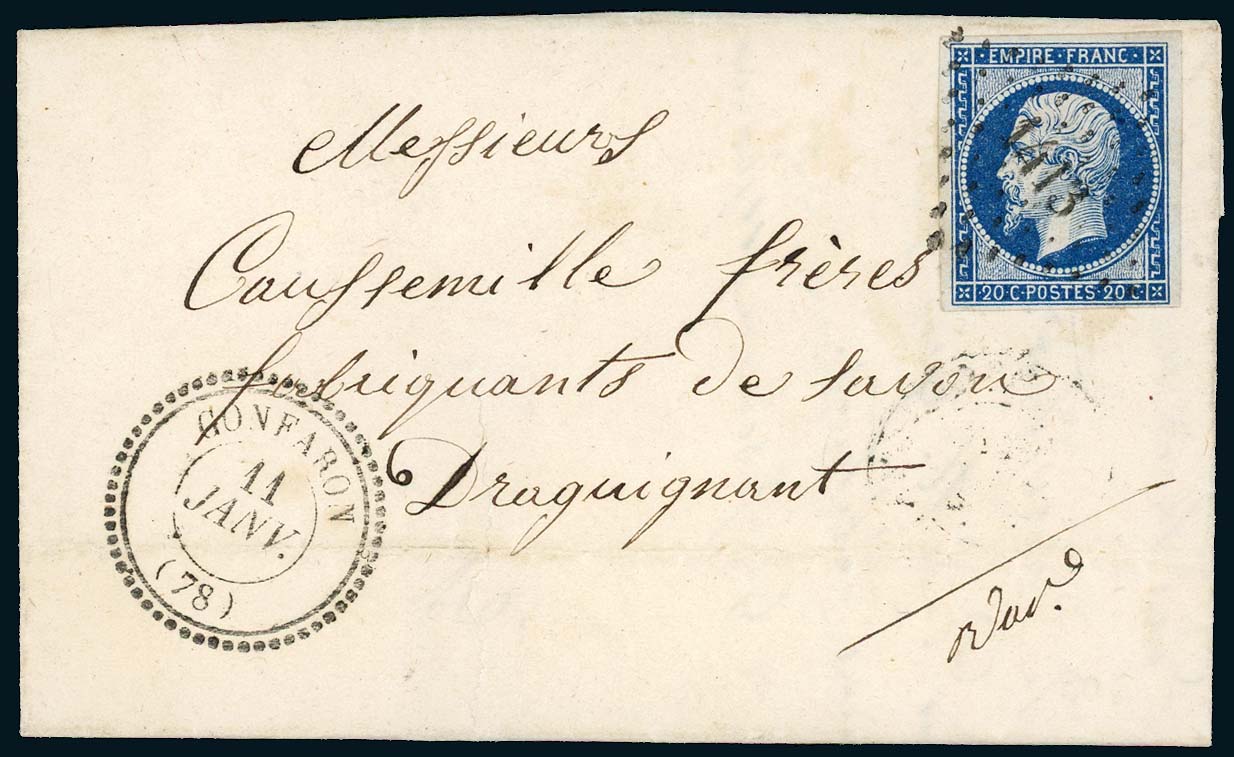 EMPIRE FRANC
1413
20 C·POSTES·20 C
Messieurs
Caussemille frères
fabriquants de savon
Draguignant
Var.
GONFARON
11
JANV.
(78)